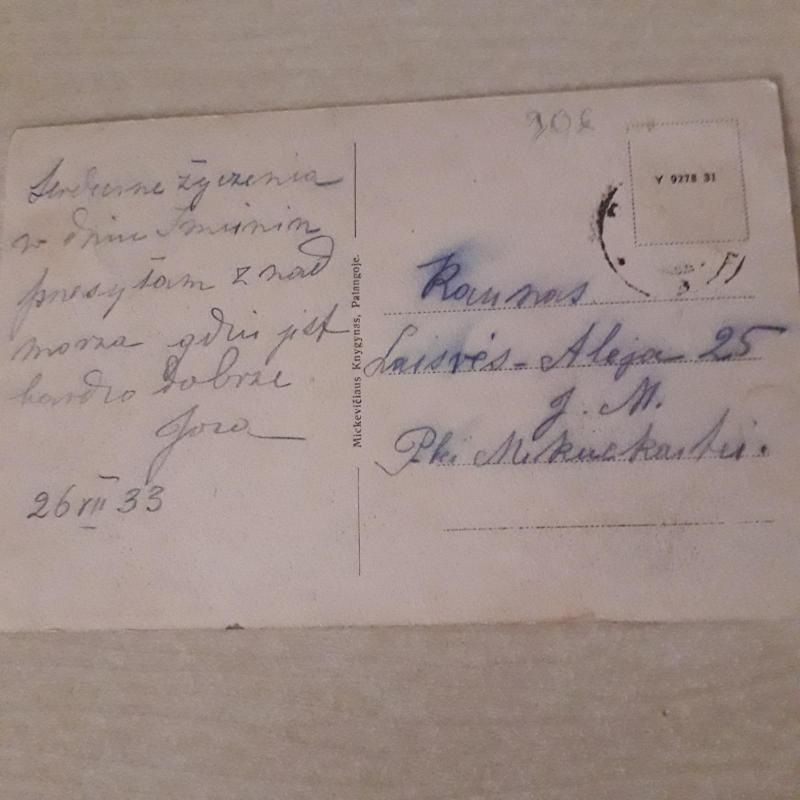 Serdeczne życzenia
w dniu Imienin
przesyłam z nad
morza gdzie jest
bardzo dobrze
26 VII 33
Mickevičiaus Knygynas, Palangoje.
902
Y 9278 31
Kaunas
Laisvės-Aleja 25
J. M.